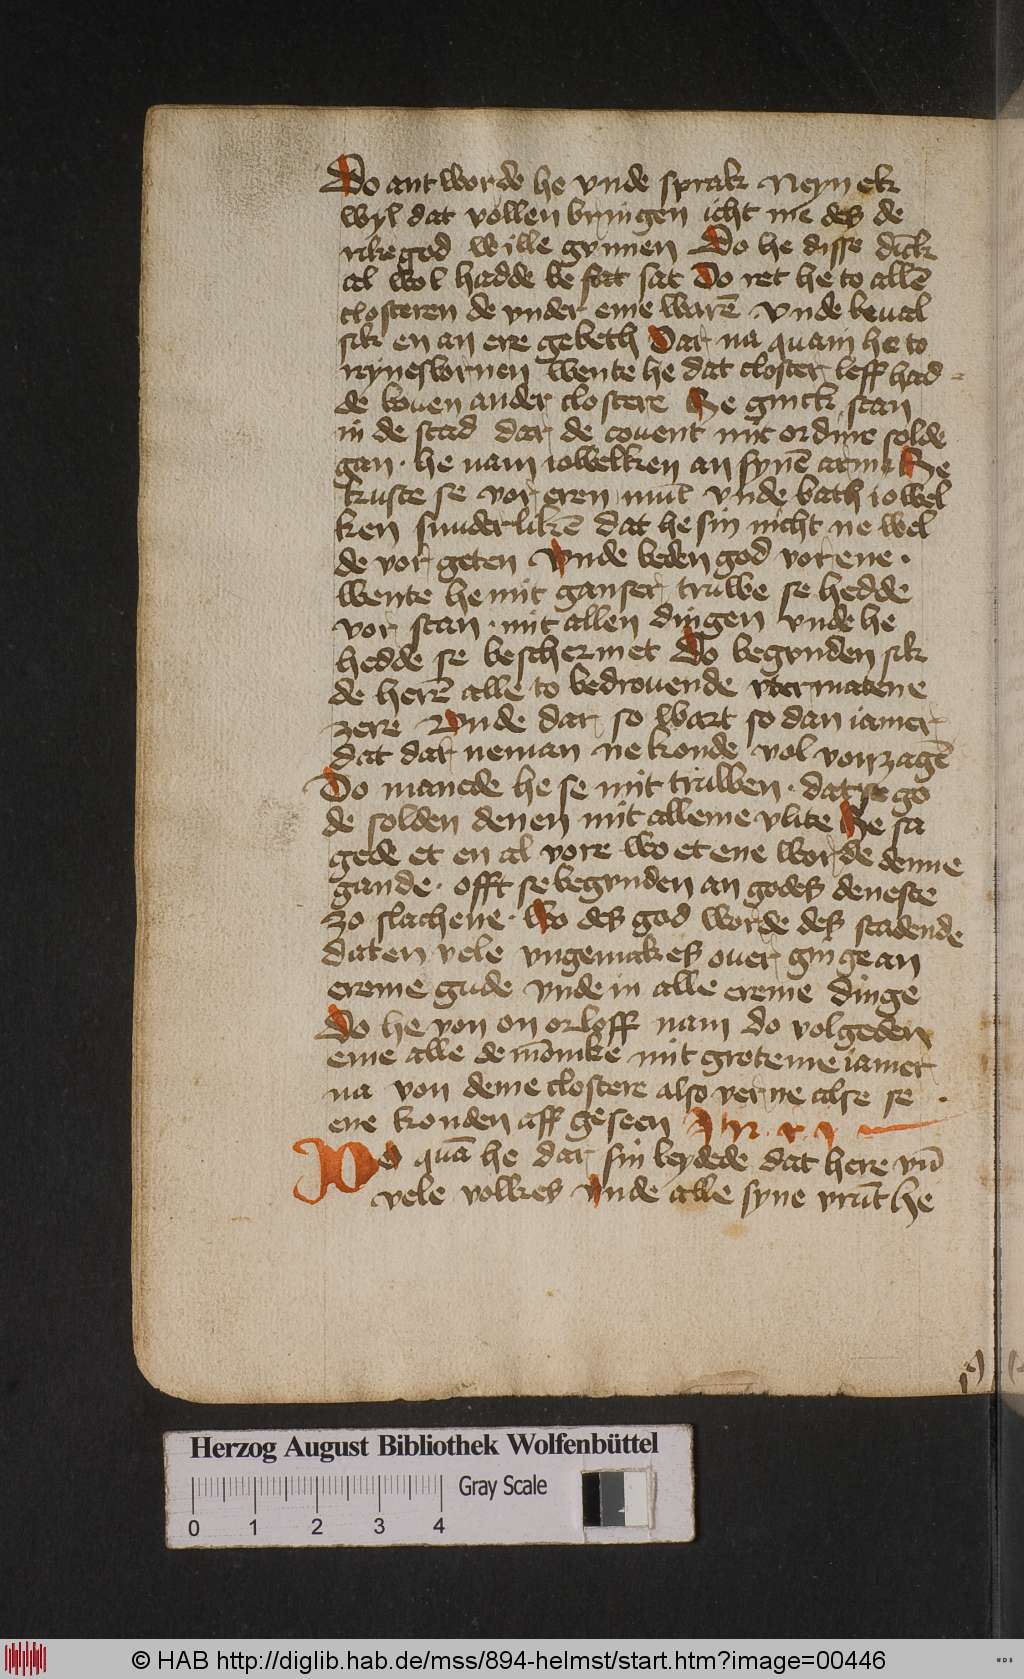 Do antworde he vnde sprak Neyn ek
wyl dat vollen bringen icht me des de
rike god wille gynnen Do he disse dick
al wol hadde be stat sat Do ret he to allē
closteren de vnder eme warē Vnde beual
sik en an ere gebeth Dar na quam he to
ryneswrnen wente he dat closter leff had-
de bouen ander clostere He ginck stan
in de stad dar de couent mit ordine solde
gan. he nam iowelken an synē arme He
kuste se vor eren mūt vnde bath iowel
ken sunderlikē dat he sin nicht ne wel
de vor geten Vnde beden god vor ene.
wente he mit ganser truwe se hedde
vor stan. mit allen dingen vnde he
hedde se beschermet Do begynden sik
de herē alle to bedrouende vtermatene
zere Vnde dar so wart so dan iamer
dat dar neman ne konde vol vonzagē
Do manede he se mit truwen. dat se go
de solden denen mit alleme vlite He sa
gede et en al vore wo et ene worde denne
gande. offt se begynden an godes deneste
zo slachene. Wo des god worde des stadende
dat en vele vngemakes ouer ginge an
ereme gude vnde in alle ereme dinge
Do he von on orloff nam do volgeden
eme alle de mōnike mit groteme iamer
na von deme clostere also verne alse se.
ene konden aff geseen
Do quā he dar sin leydede dat here vn̄
vele volkes vnde alle syne vrūt he
Herzog August Bibliothek Wolfenbüttel
Gray Scale
0 1 2 3 4
© HAB http://diglib.hab.de/mss/894-helmst/start.htm?image=00446